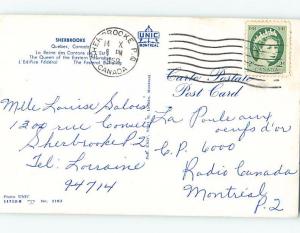 SHERBROOKE
Quebec, Canada
La Reine des Cantons de l'Est
The Queen of the Eastern Townships
L'Edifice Fédéral The Federal
UNIC
MONTREAL
SHERBROOKE P.Q.
14 X
PM
CANADA
CANADA
Carte Postale
Post Card
Mlle Louise
1200 rue
Sherbrooke P2
Tel: Lorraine
94714
La Poule aux
oeufs d'or
C.P. 6000
Radio Canada
Montréal
P.2
No.